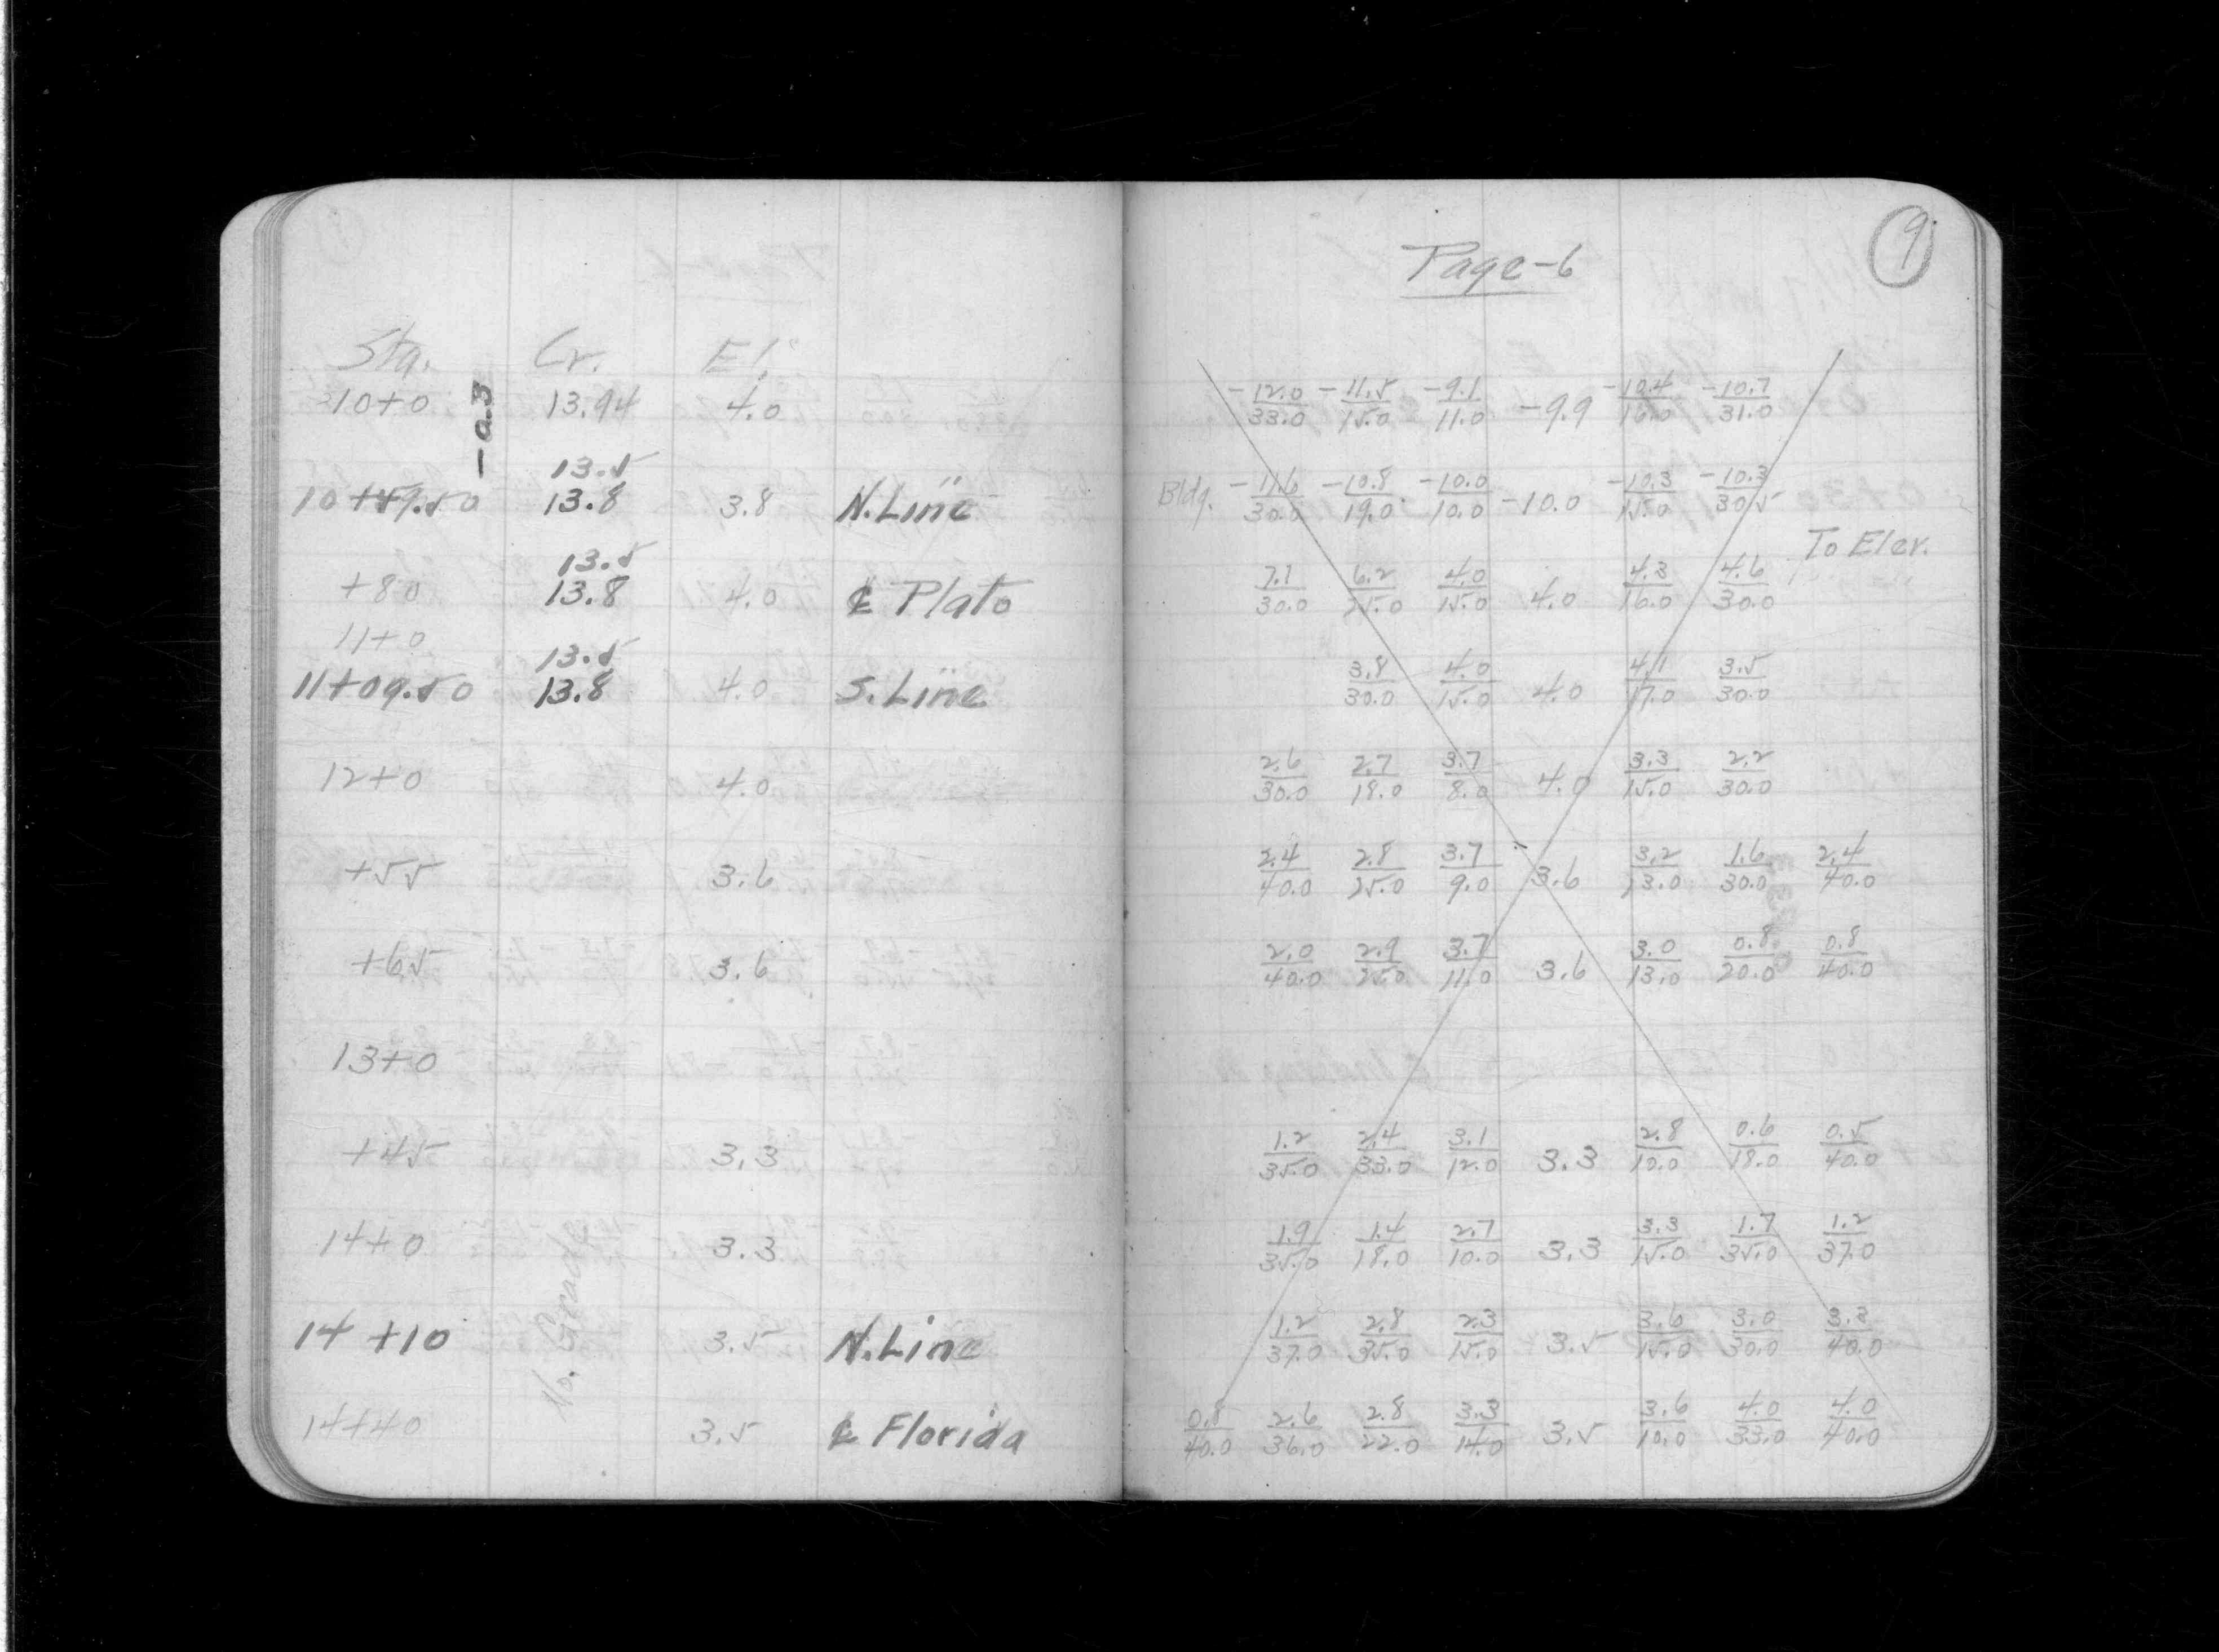 Page-6
9
Sta. Gr. El.
10+0 13.94 4.0 -12.0/33.0 -11.5/15.0 -9.1/11.0 -9.9 -10.4/16.0 -10.7/31.0
-0.3
13.5
10+49.50 13.8 3.8 N. Line Bldg. -11.6/30.0 -10.8/19.0 -10.0/10.0 -10.0 -10.3/15.0 -10.3/30.5
To Elev.
13.5
+80 13.8 4.0 ℄ Plato 7.1/30.0 6.2/25.0 4.0/15.0 4.0 4.3/16.0 4.6/30.0
11+0
13.5
11+09.50 13.8 4.0 S. Line 3.8/30.0 4.0/15.0 4.0 4.1/17.0 3.5/30.0
12+0 4.0 2.6/30.0 2.7/18.0 3.7/8.0 4.0 3.3/15.0 2.2/30.0
+55 3.6 2.4/40.0 2.8/25.0 3.7/9.0 3.6 3.2/13.0 1.6/30.0 2.4/40.0
+65 3.6 2.0/40.0 2.9/25.0 3.7/11.0 3.6 3.0/13.0 0.8/20.0 0.8/40.0
13+0
+45 3.3 1.2/35.0 2.4/33.0 3.1/12.0 3.3 2.8/10.0 0.6/18.0 0.5/40.0
14+0 3.3 1.9/35.0 1.4/18.0 2.7/10.0 3.3 3.3/15.0 1.7/35.0 1.2/37.0
No. Grade
14+10 3.5 N. Line 1.2/37.0 2.8/35.0 2.3/15.0 3.5 3.6/15.0 3.0/30.0 3.3/40.0
14+40 3.5 ℄ Florida 0.8/40.0 2.6/36.0 2.8/22.0 3.3/14.0 3.5 3.6/10.0 4.0/33.0 4.0/40.0